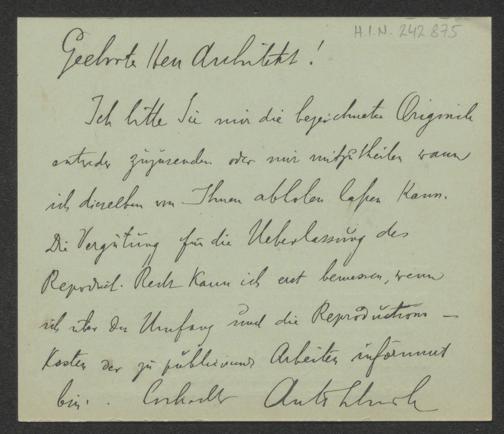 H.I.N. 242 875
Geehrter Herr Architekt!
Ich bitte Sie mir die bezeichneten Originale
entweder zuzusenden oder mir mitzutheilen wann
ich dieselben von Ihnen abholen lassen kann.
Die Vergütung für die Ueberlassung des
Reproduct. Recht kann ich erst bemessen, wenn
ich über den Umfang und die Reproductions-
Kosten der zu publicirend Arbeiten informirt
bin. Anton Schroll